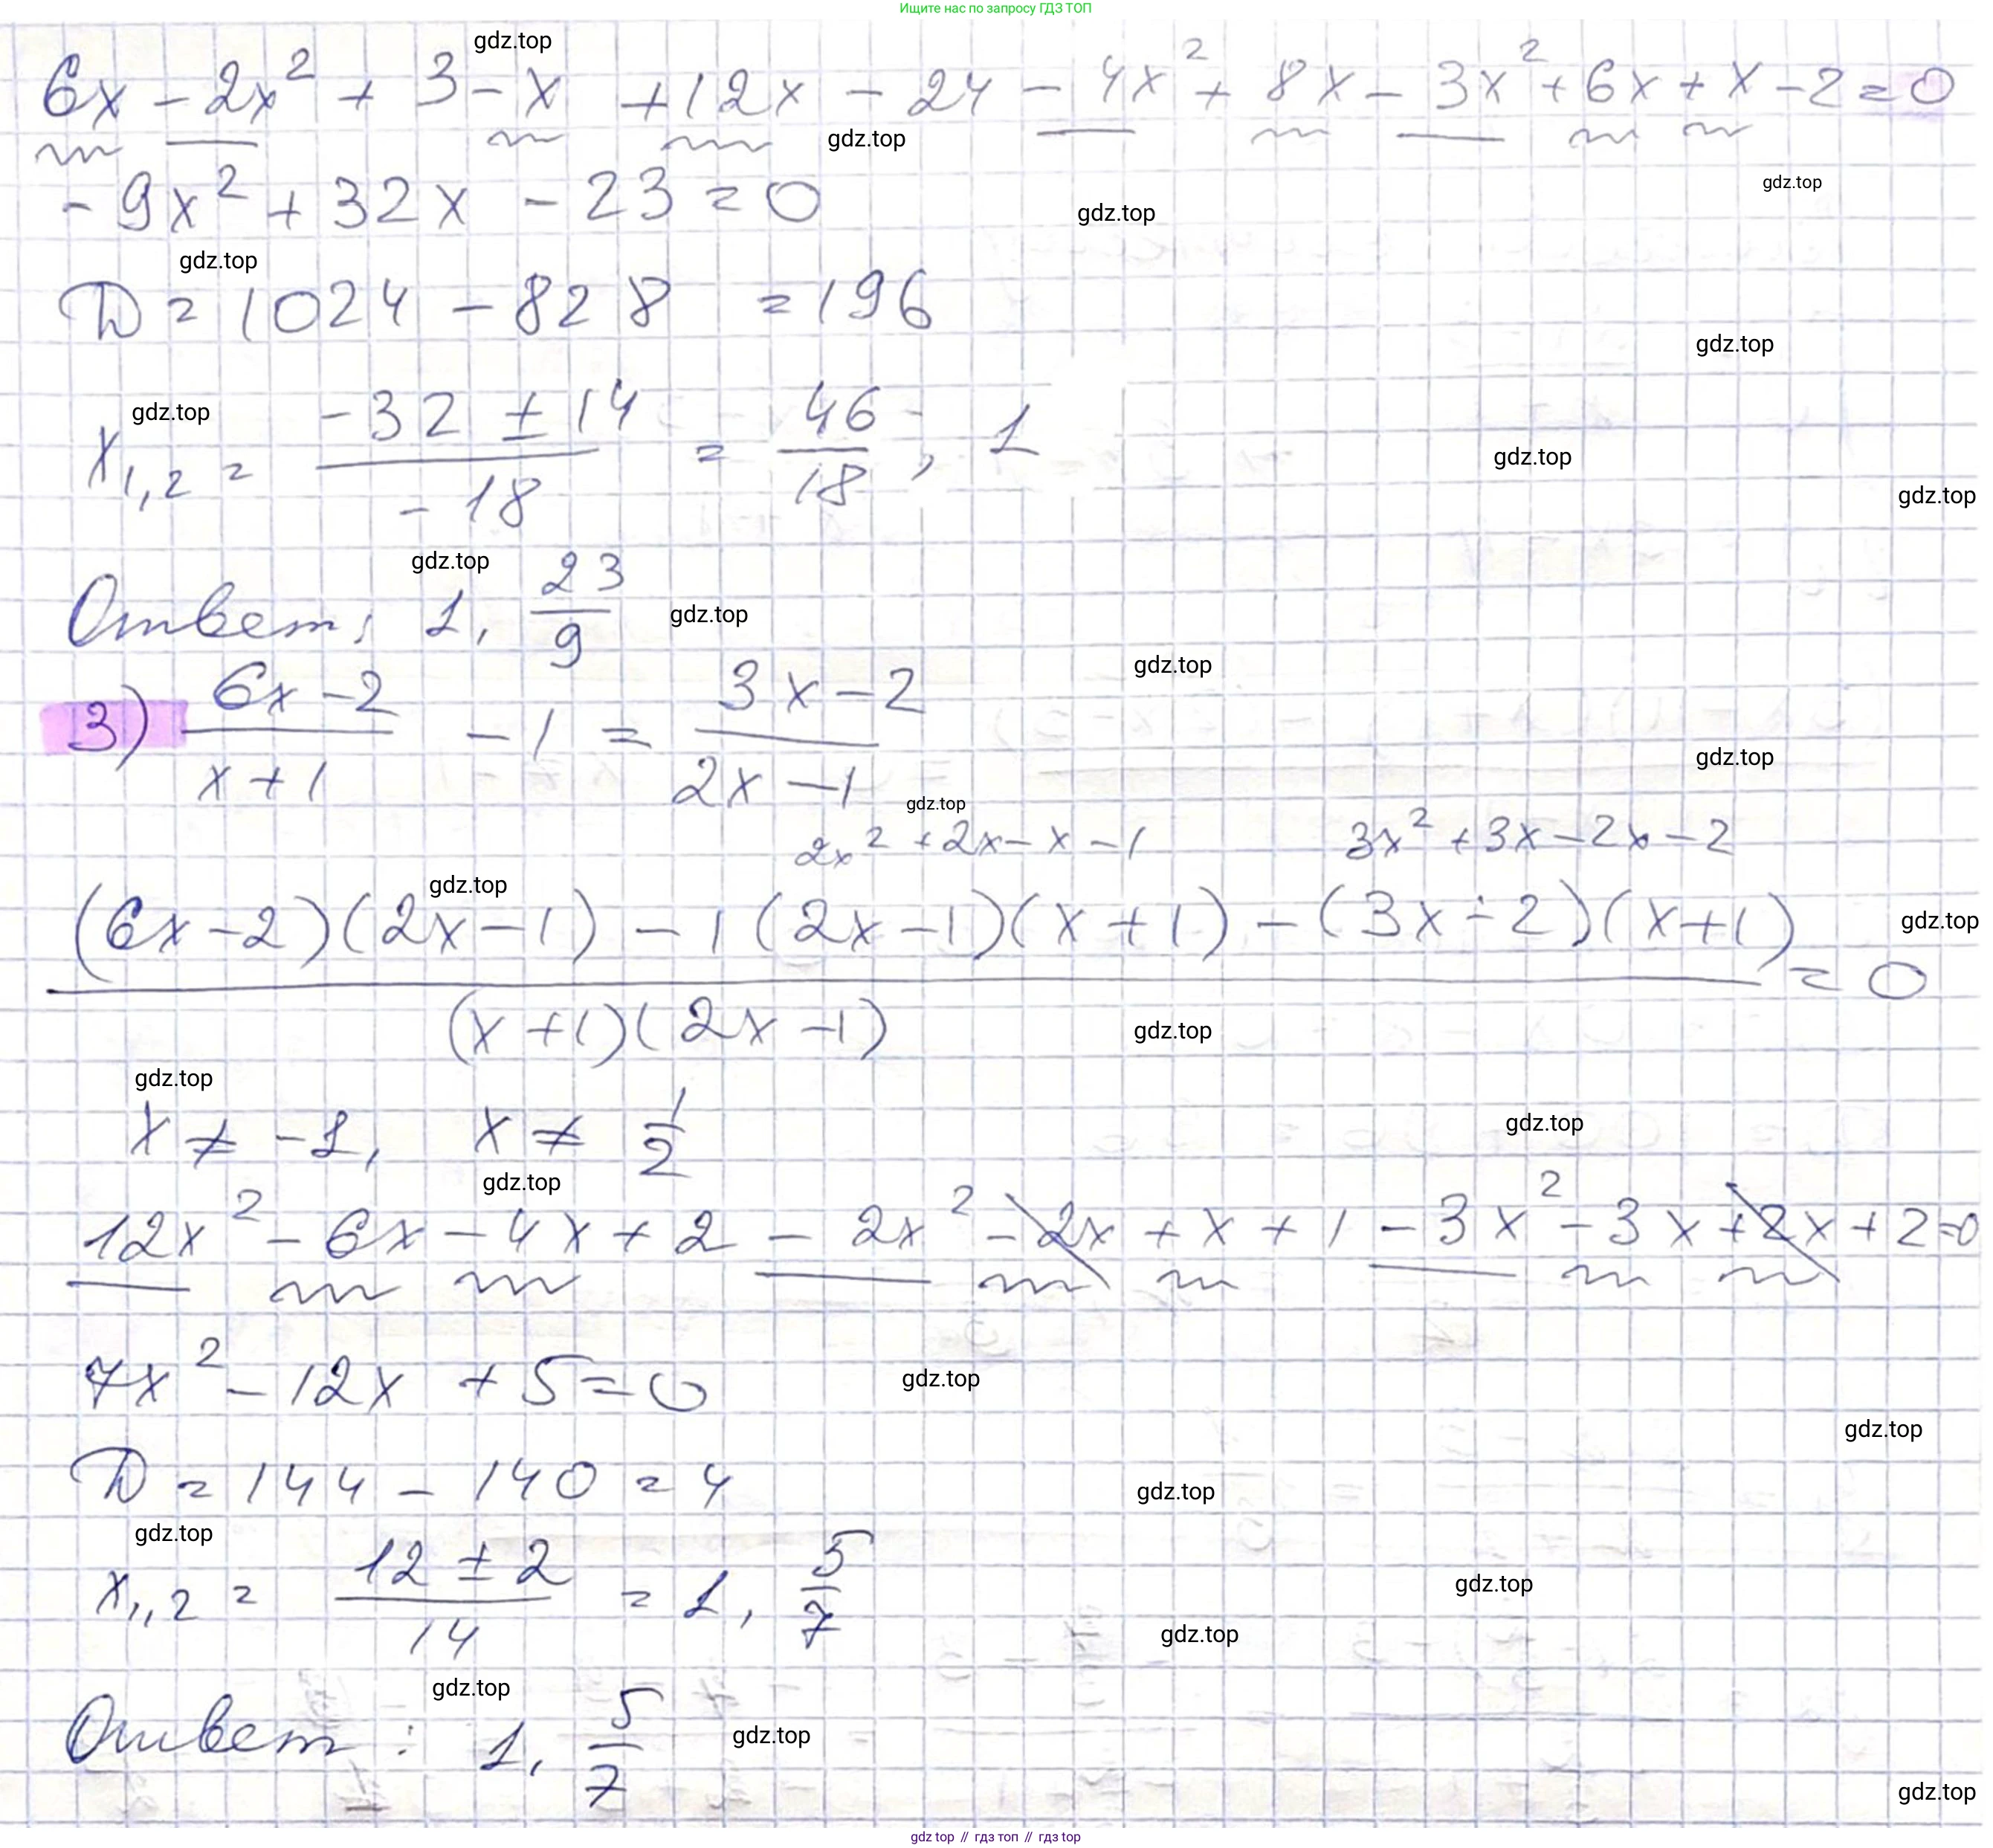 Ищите нас по запросу ГДЗ ТОП
gdz.top
6x - 2x² + 3 - x + 12x - 24 - 4x² + 8x - 3x² + 6x + x - 2 = 0
gdz.top
gdz.top
- 9x² + 32x - 23 = 0
gdz.top
gdz.top
D = 1024 - 828 = 196
gdz.top
gdz.top
x₁,₂ = (-32 ± 14)/(-18) = 46/18, 1
gdz.top
gdz.top
gdz.top
Ответ: 1, 23/9
gdz.top
gdz.top
3) (6x - 2)/(x + 1) - 1 = (3x - 2)/(2x - 1)
gdz.top
gdz.top
2x² + 2x - x - 1 3x² + 3x - 2x - 2
gdz.top
((6x - 2)(2x - 1) - 1(2x - 1)(x + 1) - (3x - 2)(x + 1))/((x + 1)(2x - 1)) = 0
gdz.top
gdz.top
gdz.top
x ≠ -1, x ≠ 1/2
gdz.top
gdz.top
12x² - 6x - 4x + 2 - 2x² - 2x + x + 1 - 3x² - 3x + 2x + 2 = 0
7x² - 12x + 5 = 0
gdz.top
gdz.top
D = 144 - 140 = 4
gdz.top
gdz.top
x₁,₂ = (12 ± 2)/14 = 1, 5/7
gdz.top
gdz.top
gdz.top
Ответ: 1, 5/7
gdz.top
gdz.top
gdz top // гдз топ // гдз top